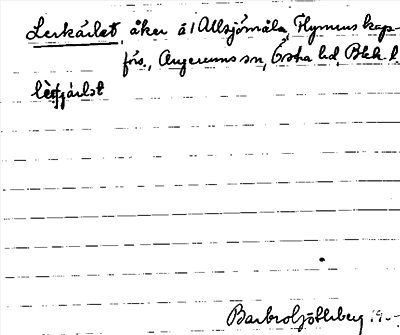 Lerkärlet, åker å 1 Allsjömåla, Flymens kap-
förs., Augerums sn, Östra hd, Blek. l
Barbro Göthberg 19